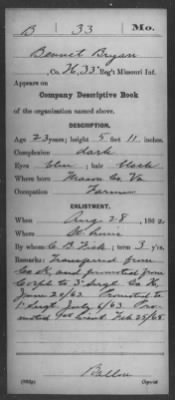 B 33 Mo.
Bennet Bryan
, Co. K, 33" Reg't Missouri Inf.
Appears on
Company Descriptive Book
of the organization named above.
DESCRIPTION.
Age 23 years; height 5 feet 11 inches.
Complexion dark
Eyes blue; hair black
Where born Mason Co. Va
Occupation Farmer
ENLISTMENT.
When Aug 28, 1862.
Where St. Louis
By whom C. B. Fisk; term 3 y'rs.
Remarks: Transferred from
Co and promoted from
Corpl to 3" Sergt Co K,
June 20/63. Promoted to
1" Sergt July 6/63. Pro-
moted 1st Lieut Feb 25/65.
Ballou
Copyist